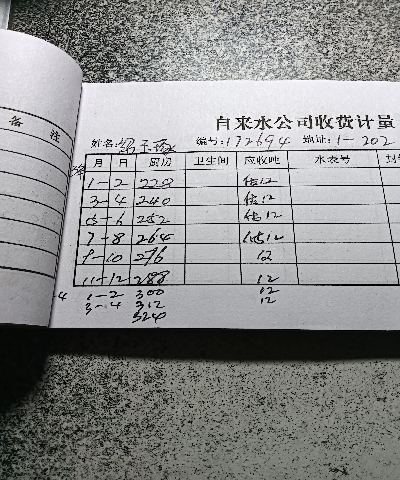 备注
自来水公司收费计量
姓名: 编号:172694 地址:1-202
月 日 厨房 卫生间 应收吨 水表号
1-2 228 估12
3-4 240 估12
5-6 252 估12
7-8 264 估12
9-10 276 12
11-12 288 12
1-2 300 12
3-4 312 12